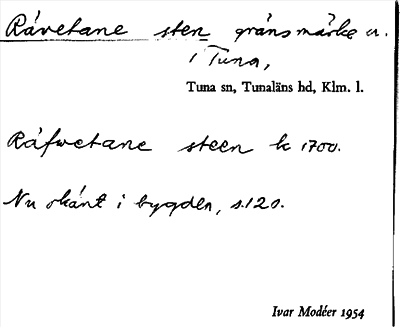 Råvetane sten gränsmärke u.
i Tuna,
Tuna sn, Tunaläns hd, Klm. l.
Råfwetane steen k 1700.
Nu okänt i bygden, s.120.
Ivar Modéer 1954